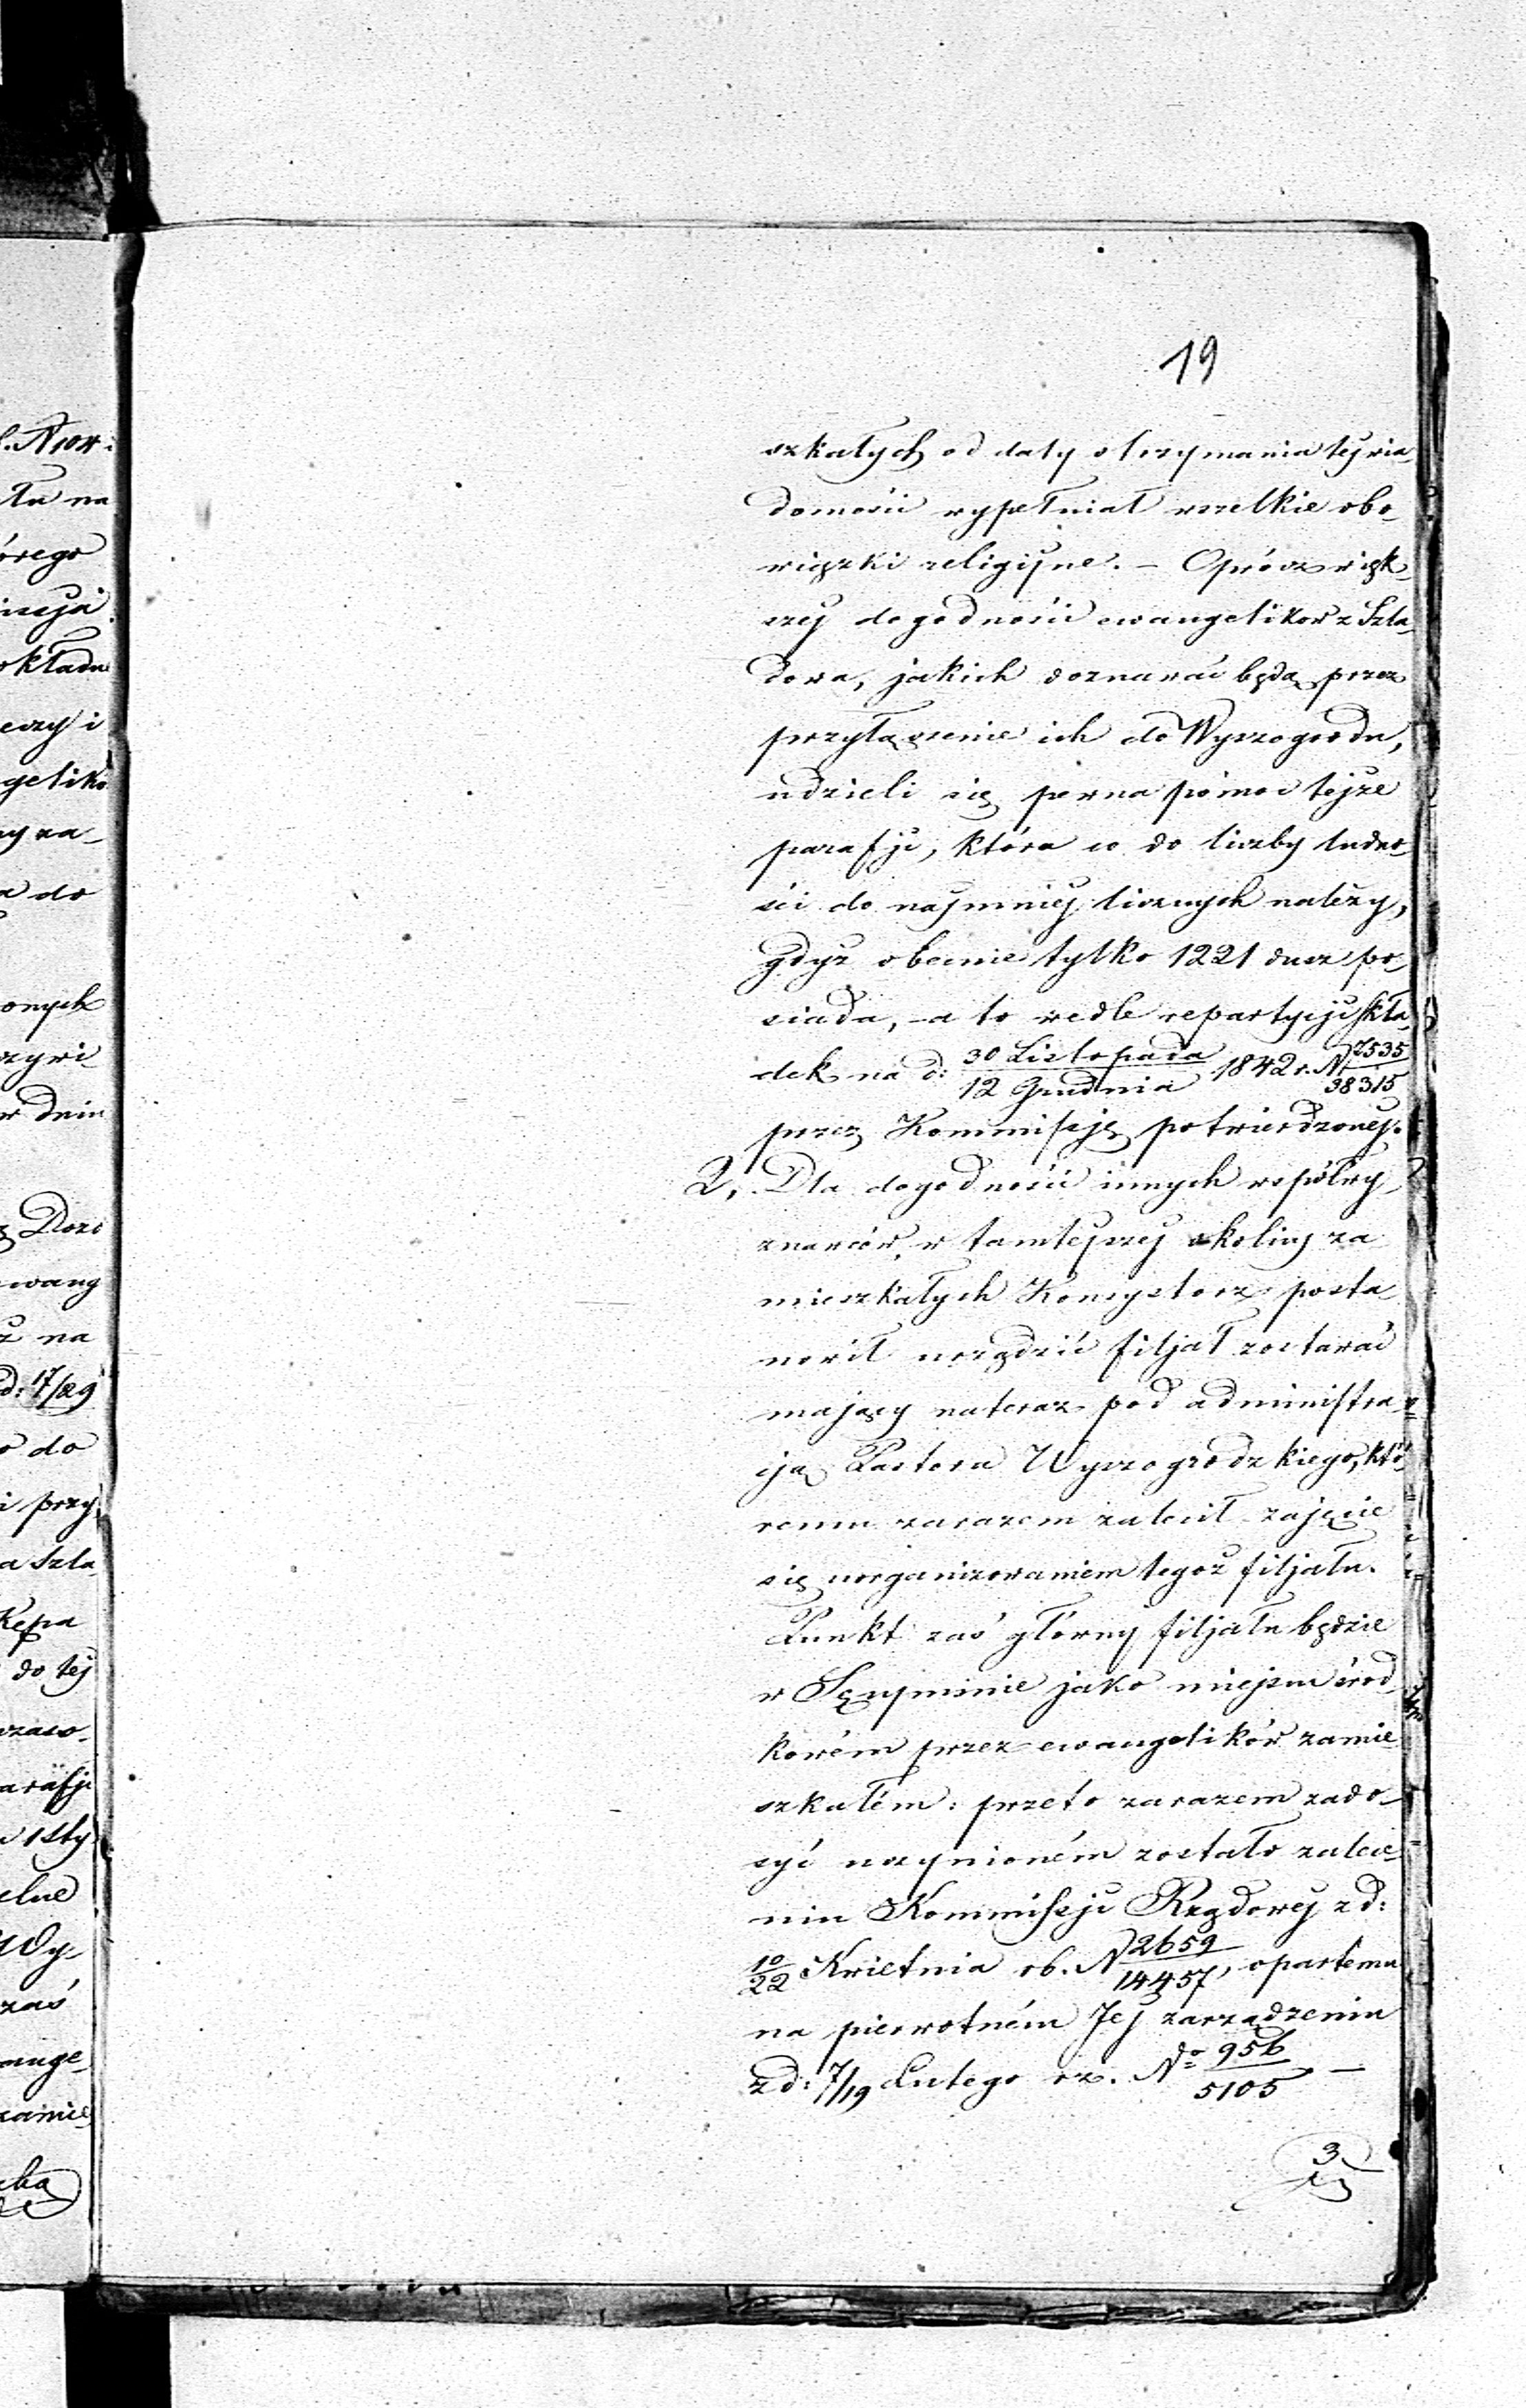 19
szkałych od daty otrzymania tej wia-
domości wypełniał wszelkie obo-
wiązki religijne. – Oprócz więk-
szej dogodności ewangelików z Szla-
dowa, jakich doznawać będą przez
przyłączenie ich do Wyszogrodu,
udzieli się pewna pomoc tejże
parafji, która co do liczby ludno-
ści do najmniej licznych należy,
gdyż obecnie tylko 1221 dusz po-
siada, – a to wedle repartycji skła-
dek na d: 30 Listopada / 12 Grudnia 1842 r. N 7535/38315
przez Kommissję potwierdzonej.
2, Dla dogodności innych wspólwy-
znawców, w tamtejszej okolicy za
mieszkałych Konsystorz posta-
nowił urządzić filjał zostawać
mający nateraz pod administra-
cją Pastora Wyszogrodzkiego, któ-
remu zarazem zalecił zajęcie
się uorganizowaniem tegoż filjału.
Punkt zaś główny filjału będzie
w Secyminie jako miejscu środ-
kowém przez ewangelików zamie-
szkałém: przeto zarazem zado-
syć uczynioném zostało zalece-
niu Kommissji Rządowej z d:
10/22 Kwietnia rb. N 2659/14457, opartemu
na pierwotném Jej zarządzeniu
z d: 7/19 Lutego rz. No 956/5105 –
3
ł. N
łu na
órego
okładn
eczy i
gelikó
ny za-
a do
onych
zywi
w dniu
Dozo
ewang
ż na
d: 17/29
o do
i przy
a Szla
Kępa
do tej
arafji
elne
Wy-
zaś
ange-
zamie